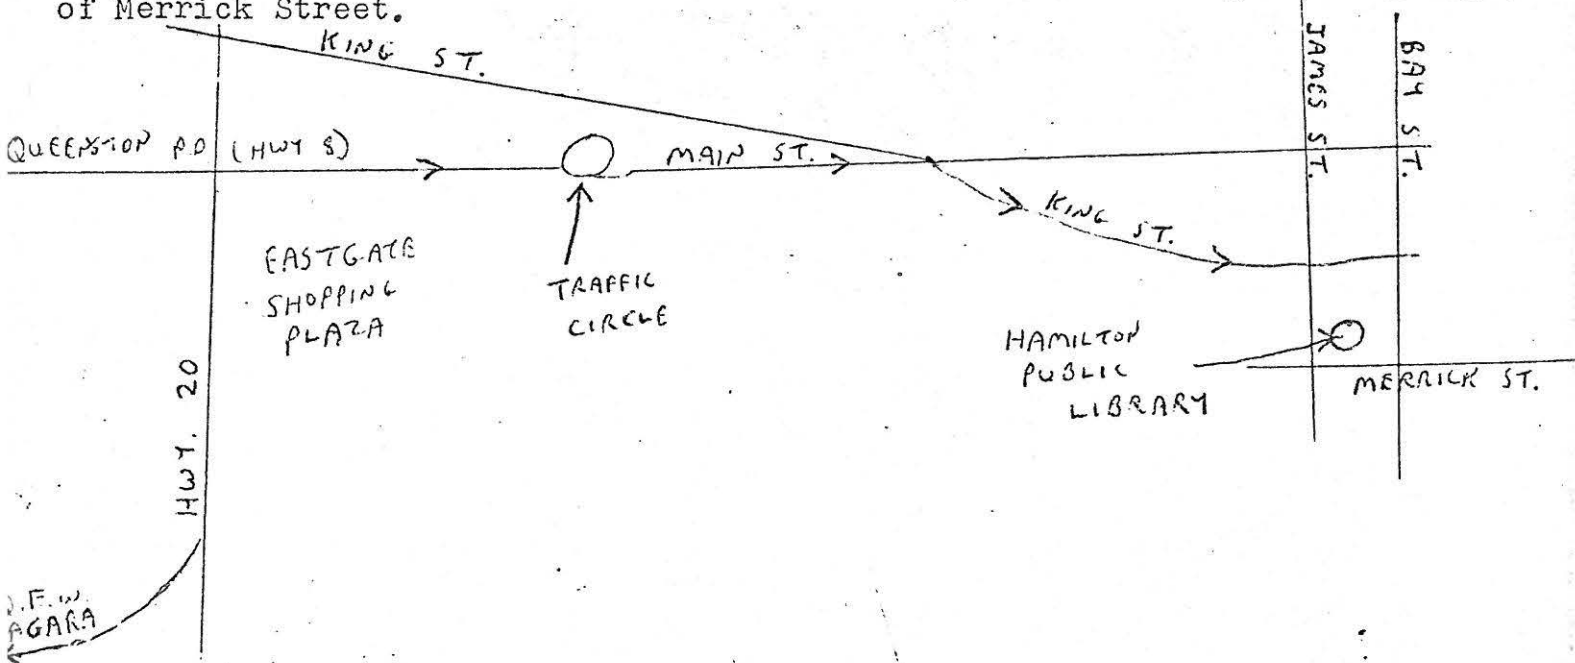 of Merrick Street.
KING ST.
JAMES ST.
BAY ST.
QUEENSTON RD (HWY 8)
MAIN ST.
KING ST.
EASTGATE
SHOPPING
PLAZA
TRAFFIC
CIRCLE
HAMILTON
PUBLIC
LIBRARY
MERRICK ST.
HWY. 20
AGARA